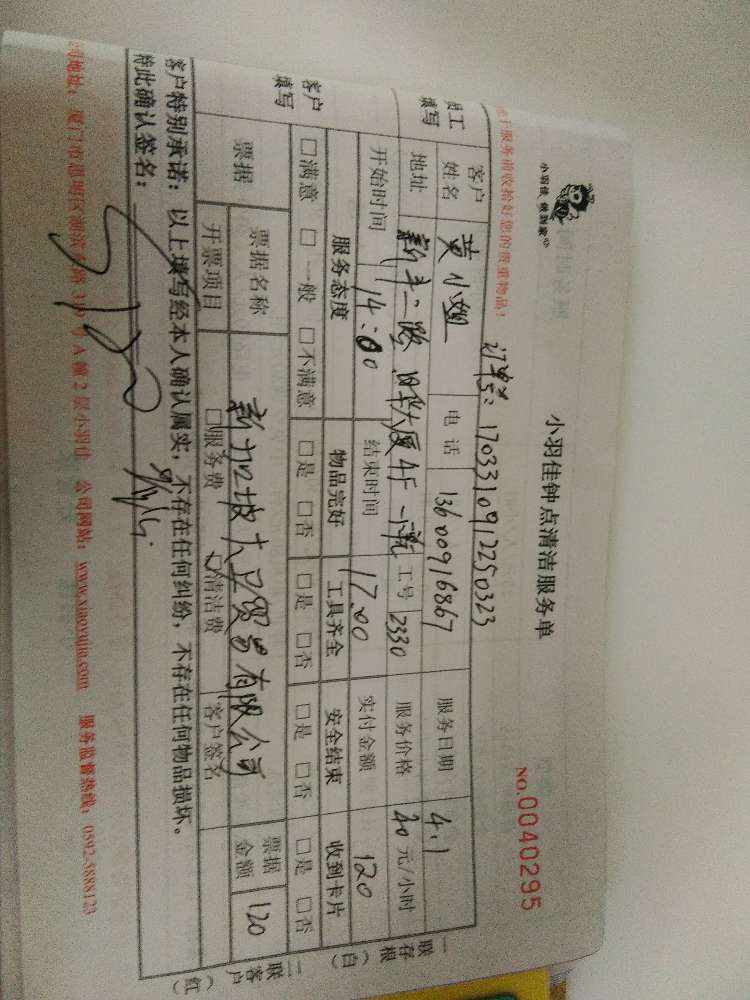 小羽佳 做到家
小羽佳钟点清洁服务单
NO.0040295
于服务前收拾好您的贵重物品!
订单号: 1703310912250323
员工填写
客户姓名 黄小姐 电话 13600916867 服务日期 4.1
地址 新丰二路 大厦4F 工号 2330 服务价格 40 元/小时
开始时间 14:00 结束时间 17:00 实付金额 120
客户填写
服务态度 物品完好 工具齐全 安全结束 收到卡片
□满意 □一般 □不满意 □是 □否 □是 □否 □是 □否 □是 □否
票据 票据名称 新加坡大 贸易有限公司 票据金额 120
开票项目 □服务费 □清洁费 客户签名
客户特别承诺: 以上填写经本人确认属实,不存在任何纠纷,不存在任何物品损坏。
特此确认签名:
司地址: 厦门市思明区湖滨 路 319号A幢2层小羽佳 公司网站: www.xiaoyujia.com 服务监督热线: 0592-5888123
一联存根(白)
二联客户(红)